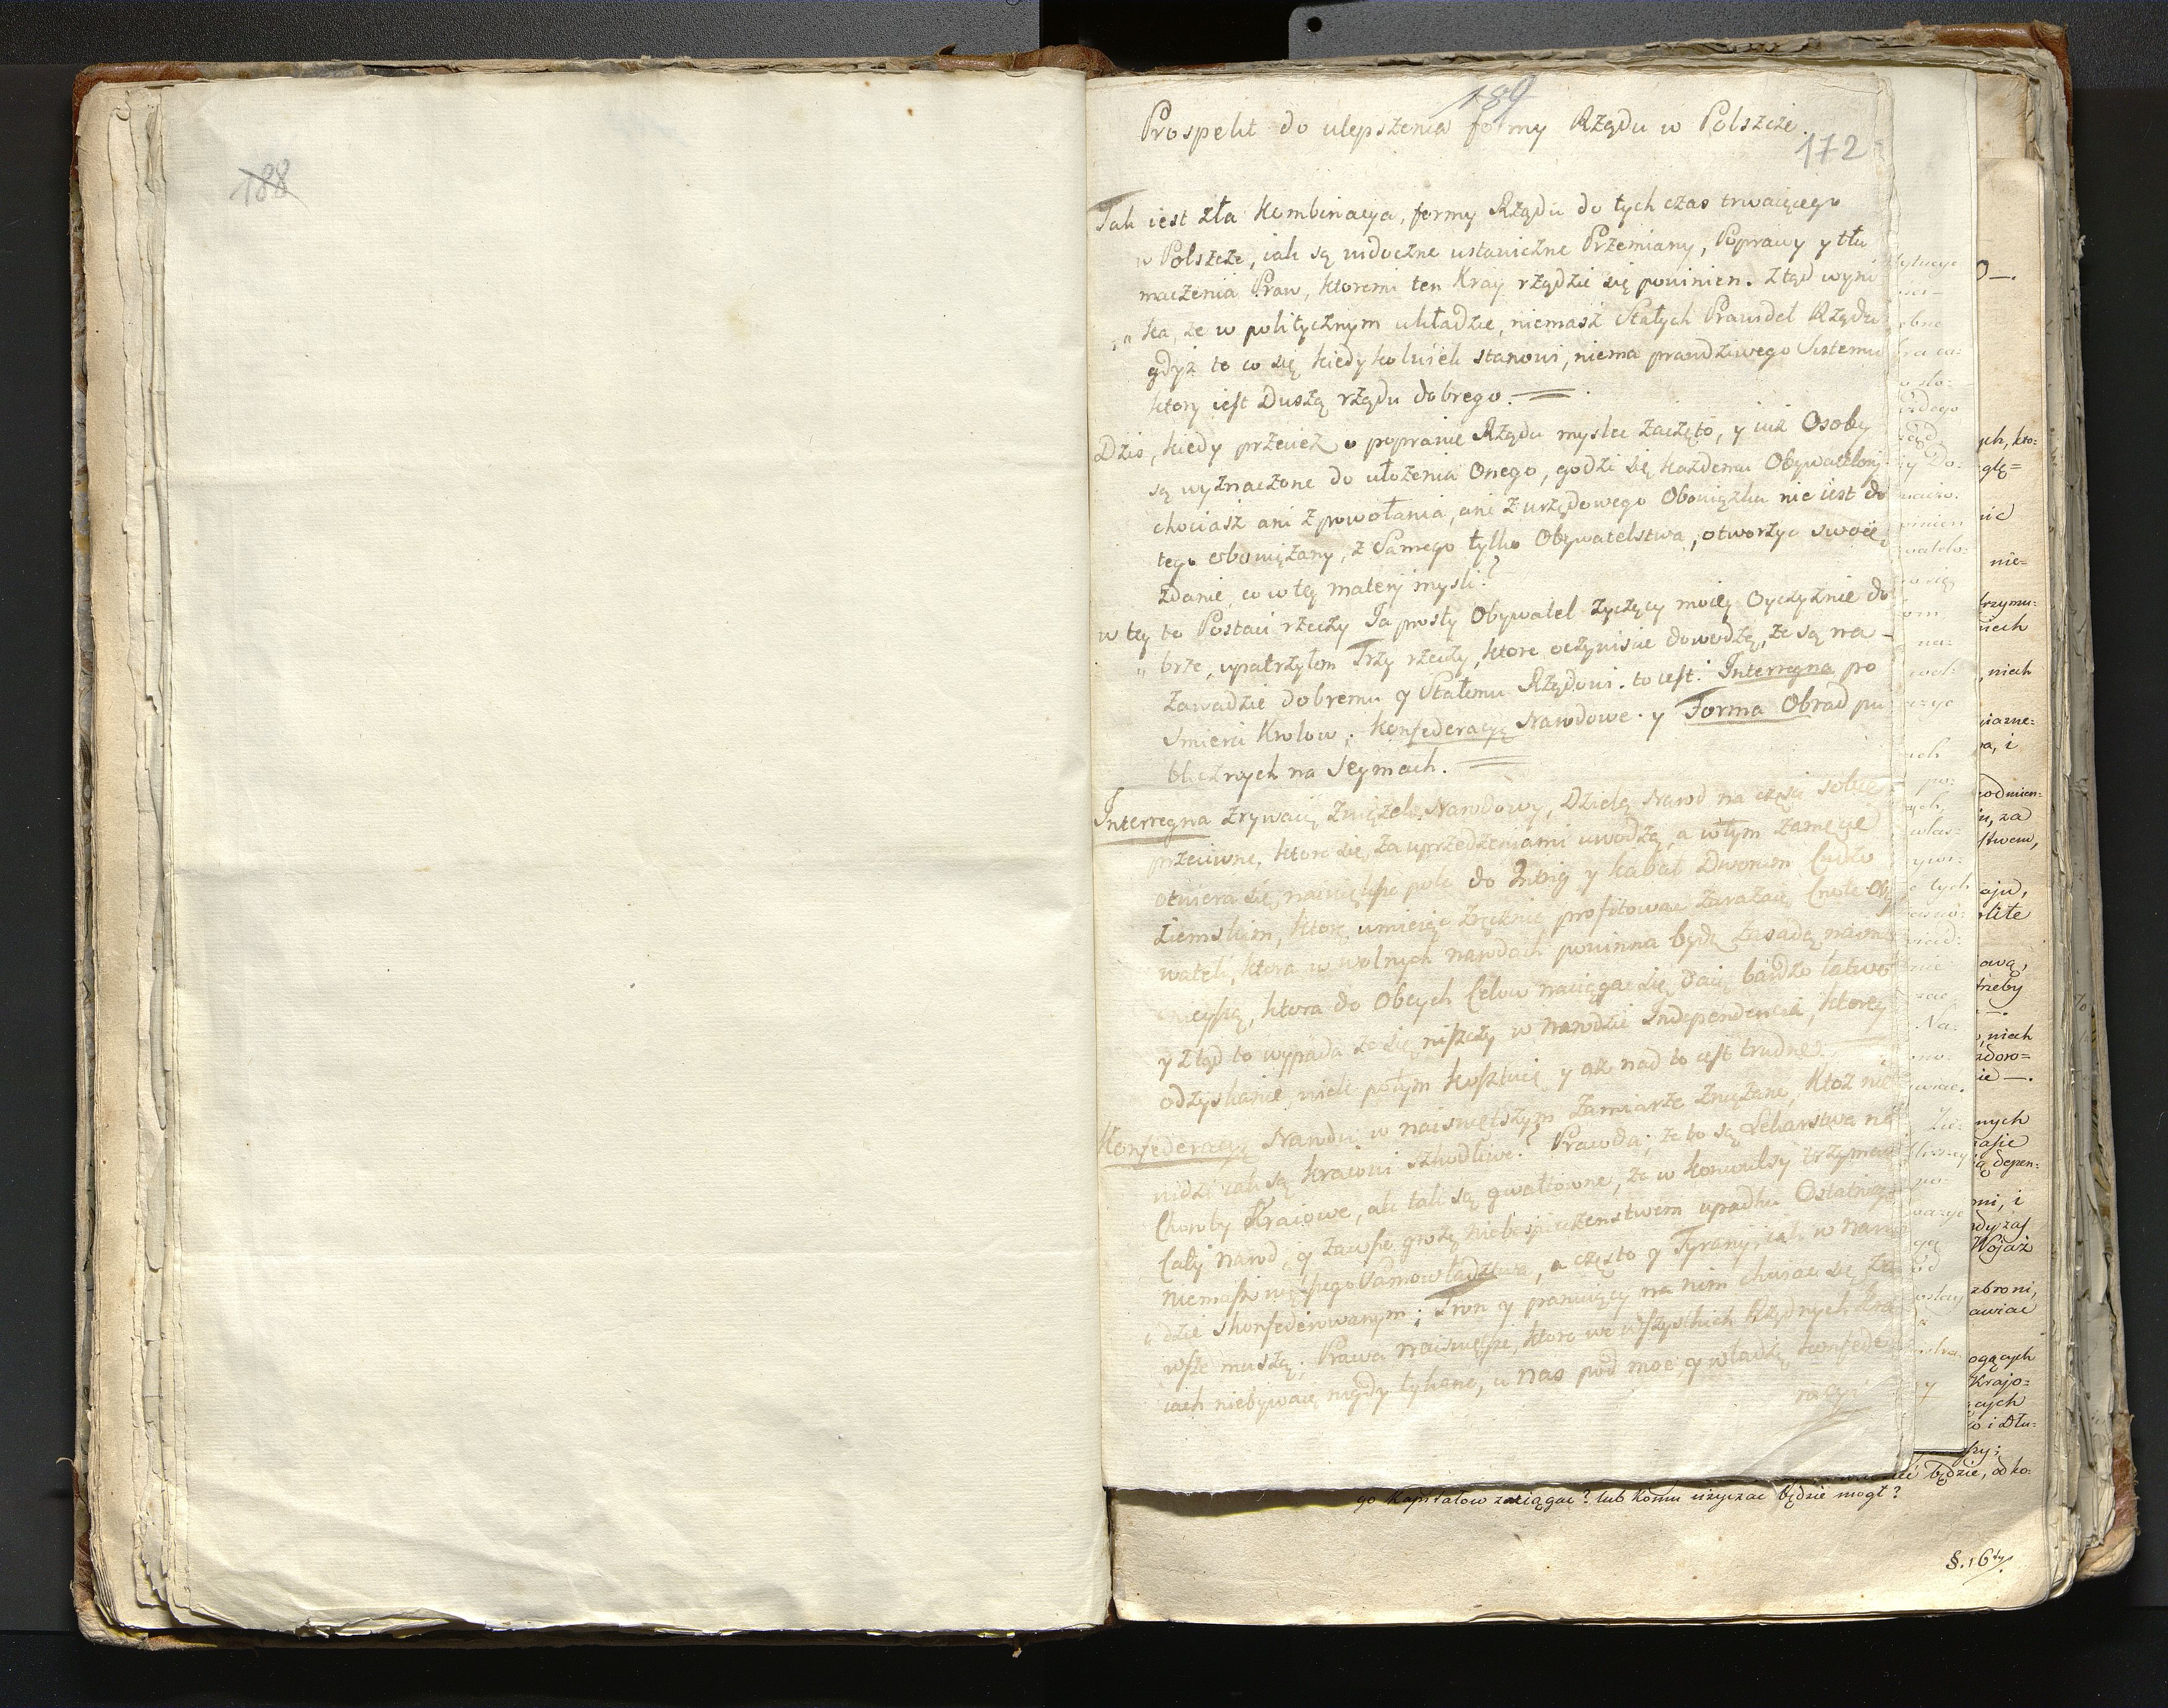 188
189
Prospekt do ulepszenia formy Rządu w Polszcze.
172
Tak iest zła Kombinacya, formy Rządu do tych czas trwaiącego
w Polszcze, iak są widoczne ustawiczne Przemiany, Poprawy y tłu
maczenia Praw, ktoremi ten Kray rządzić się powinien. Ztąd wyni
„ ka, że w politycznym układzie, niemasz Stałych Prawideł Rządu
gdyż to co się kiedykolwiek stanowi, niema prawdziwego Sistemu
ktory iest Duszą rządu dobrego.
Dziś, kiedy przecież o poprawie Rządu myslić zaczęto, y iuż Osoby
są wyznaczone do ułożenia Onego, godzi się każdemu Obywatelowi
chociasz ani z powołania, ani z urzędowego Obowiązku nie iest do
tego obowiązany, z Samego tylko Obywatelstwa, otworzyc swoie
zdanie, co w tey materyi mysli?
w tey to Postaci rzeczy Ja prosty Obywatel życzący moiey Oyczyznie do
„ brze, upatrzyłem Trzy rzeczy, ktore oczywiscie dowodzą, że są na
zawadzie dobremu y Stałemu Rządowi. to iest: Interregna po
Smierci Krolow; Konfederacye Narodowe. y Forma Obrad pu
blicznych na Seymach.
Interregna zrywaią Związek Narodowy, Dzielą Narod na części sobie
przeciwne, ktore się za uprzedzeniami uwodzą, a w tym zamęcie
otwiera się naywiększe pole do Intryg y kabał Dworom Cudzo
ziemskim, ktore umieiąc zręcznie profitowac zarażaią Cnote Oby
wateli, ktora w wolnych narodach powinna bydź zasadą naymo
cnieyszą, ktora do Obcych Celow naciągac się daie bardzo łatwo
y ztąd to wypada że się niszczy w narodzie Independencia, ktorey
odzyskanie, wiele potym kosztuie y aż nad to iest trudne.
Konfederacye Narodu w naiswiętszym zamiarze związane, Ktoż nie
widzi iak są kraiowi szkodliwe? Prawda, że to są Lekarstwa na
Choroby Kraiowe, ale tak są gwałtowne, że w konwulsyi trzymaią
Cały narod, y zawsze grożą niebespieczenstwem upadku Ostatniego
niemasz większego Samowładztwa, a często y Tyranyi, iak w naro
„ dzie skonfederowanym; Tron y panuiący na nim chwiac się za
wsze muszą; Prawa naiswiętsze, ktore we wszystkich Rządnych kra
iach niebywaią nigdy tykane, u nas pod moc y władzę konfede
racyi
go Kapitałow zaciągac? lub komu uzyczac będzie mogł?
będzie, od ko-
§. 16ty.